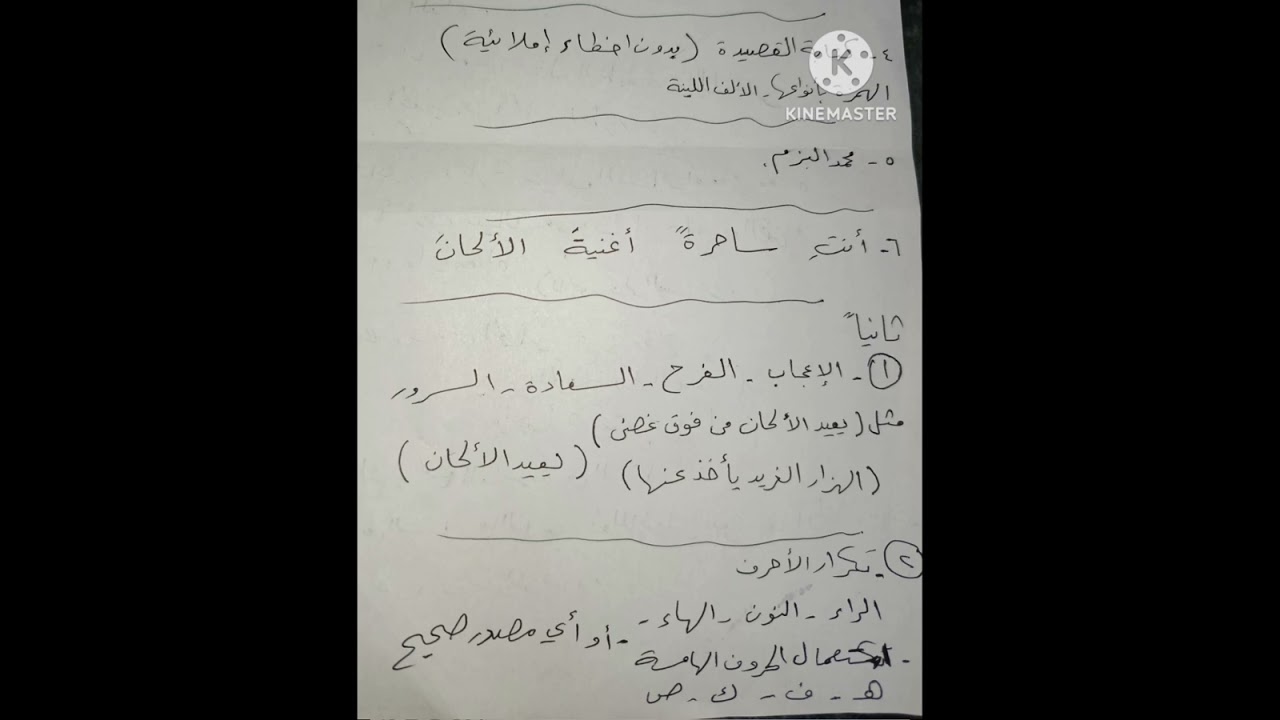 ٤- القصيدة (بدون اخطاء إملائية)
الهمزة بأنواعها - الألف اللينة
KINEMASTER
٥- محمد البزم.
٦- أنتِ ساحرةً أغنيةَ الألحانَ
ثانياً
١- الإعجاب - الفرح - السعادة - السرور
مثل (يعيد الألحان من فوق غصنى)
(الهزار الغريد يأخذ عنها) (ليعيد الألحان)
٢- تكرار الأحرف
الراء - النون - الهاء - - أو أي مصدر صحيح
- استعمال الحروف الهامسة
هـ - ف - ك - ص